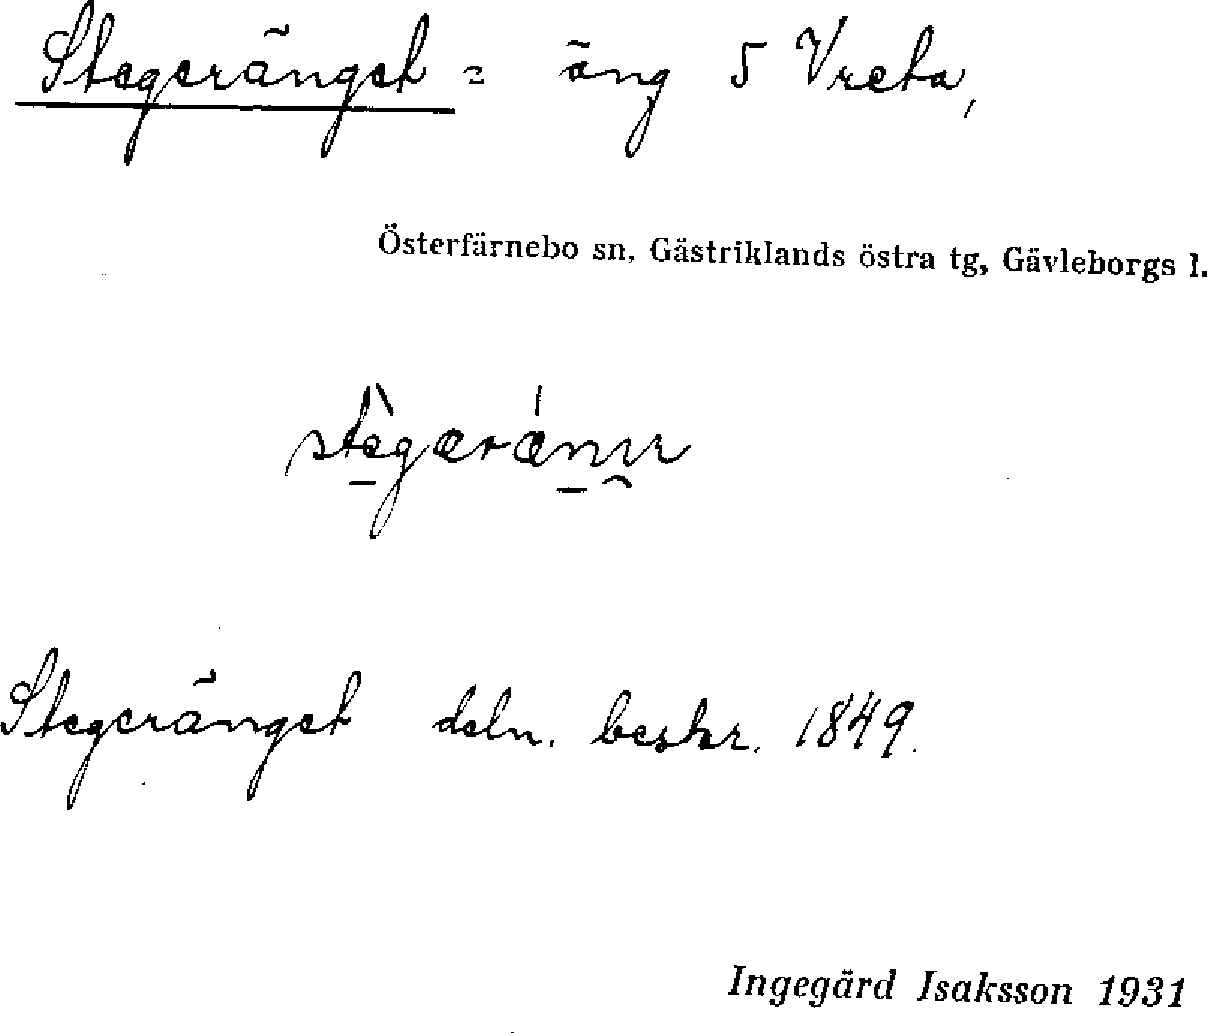 Stegeränget = äng 5 Vreta,
Österfärnebo sn, Gästriklands östra tg, Gävleborgs l.
Stegeränget deln. beskr. 1849.
Ingegärd Isaksson 1931